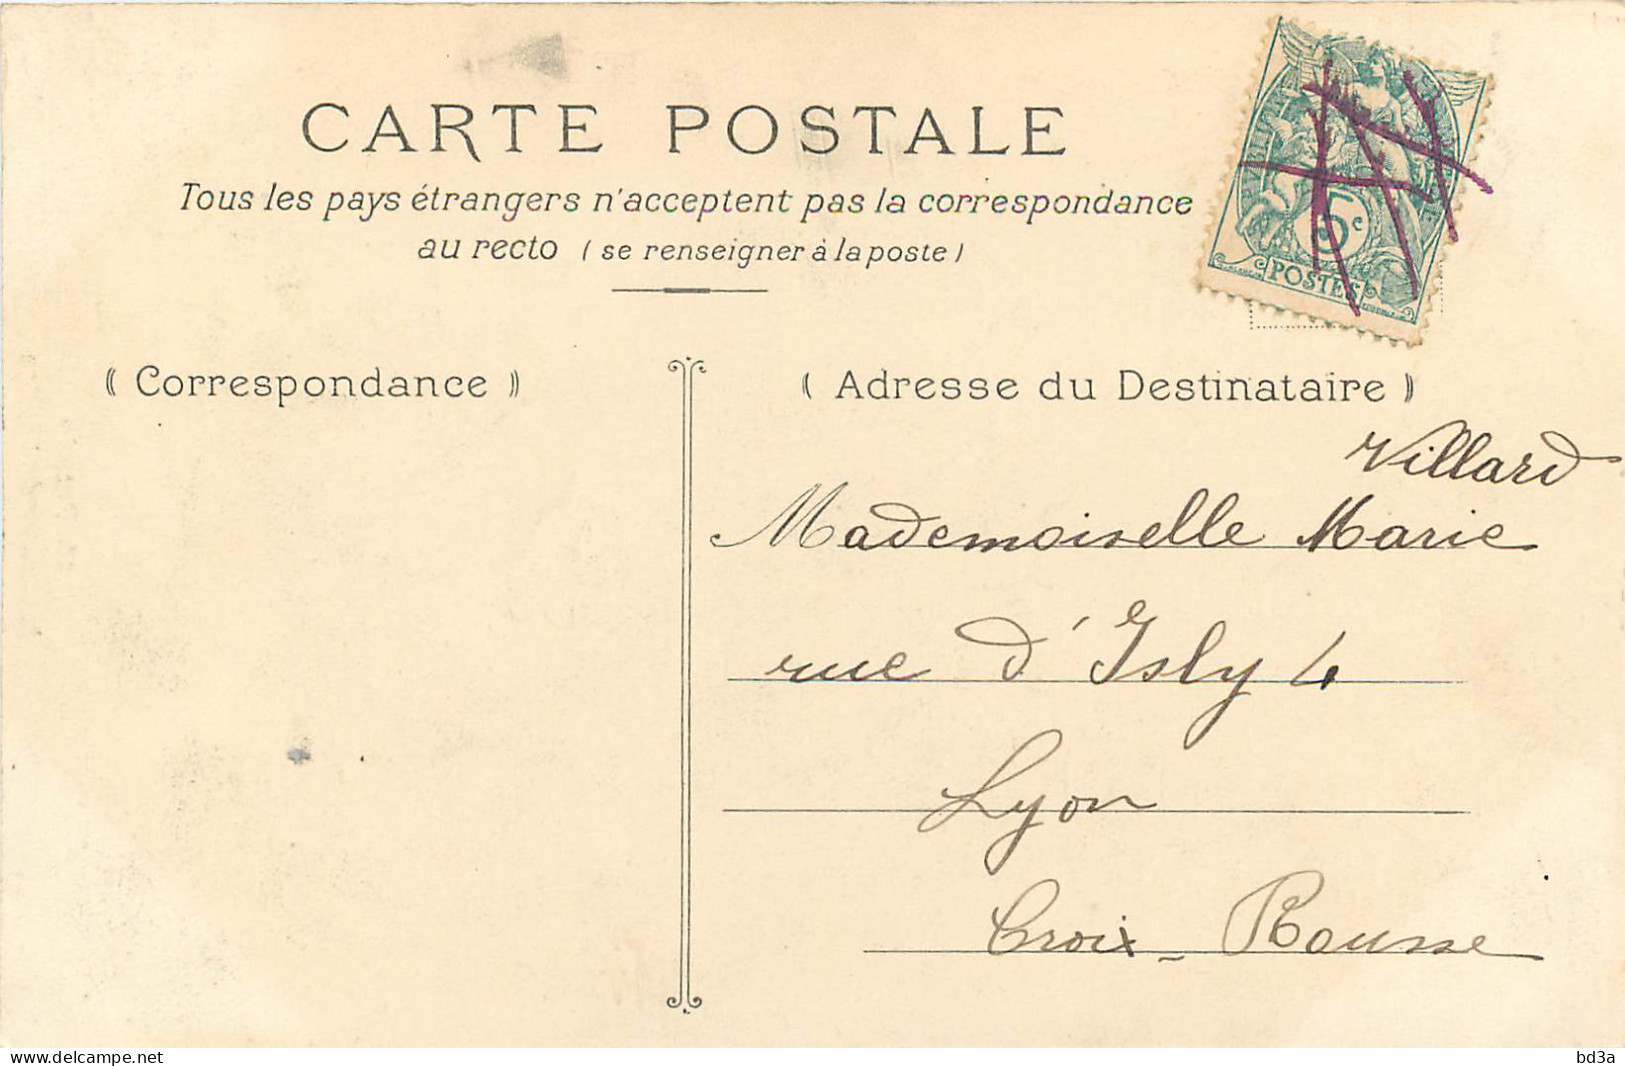 CARTE POSTALE
Tous les pays étrangers n'acceptent pas la correspondance
au recto ( se renseigner à la poste )
5c
POSTES
( Correspondance )
( Adresse du Destinataire )
Villard
Mademoiselle Marie
rue d'Isly 4
Lyon
Croix-Rousse
www.delcampe.net
bd3a